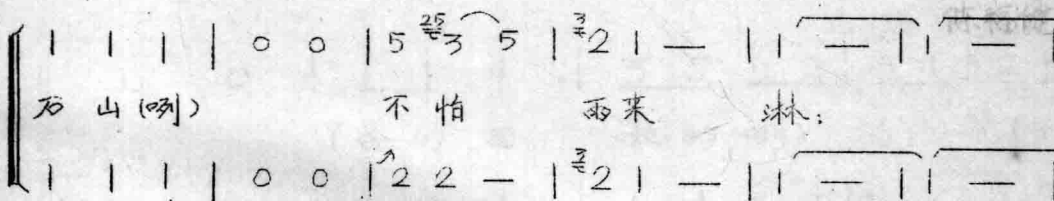 1 1 1 | 0 0 | 5 25 3 5 | 3 2 1 — | 1 — | 1 — |
石 山 (咧) 不 怕 雨 来 淋；
1 1 1 | 0 0 | 2 2 — | 3 2 1 — | 1 — | 1 — |